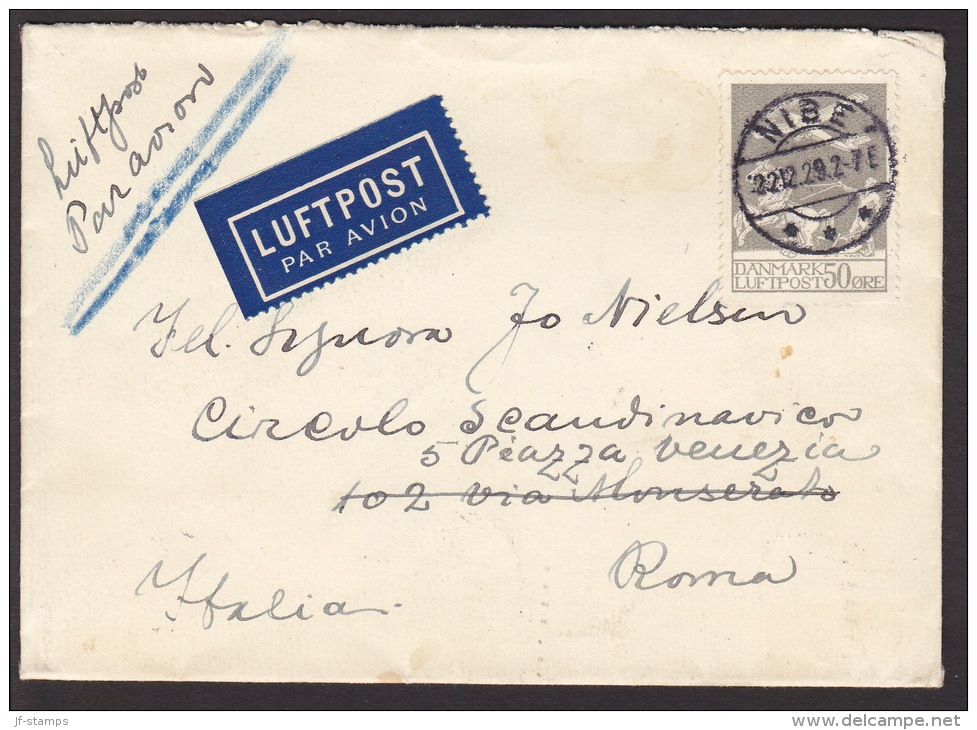 Luftpost
Par avion
LUFTPOST
PAR AVION
NIBE
22.12.29.2-7E
DANMARK
LUFTPOST 50 ØRE
Signora Jo Nielsen
Circolo Scandinavico
5 Piazza Venezia
102 Via Monserato
Roma
Italia.
jf-stamps
www.delcampe.net